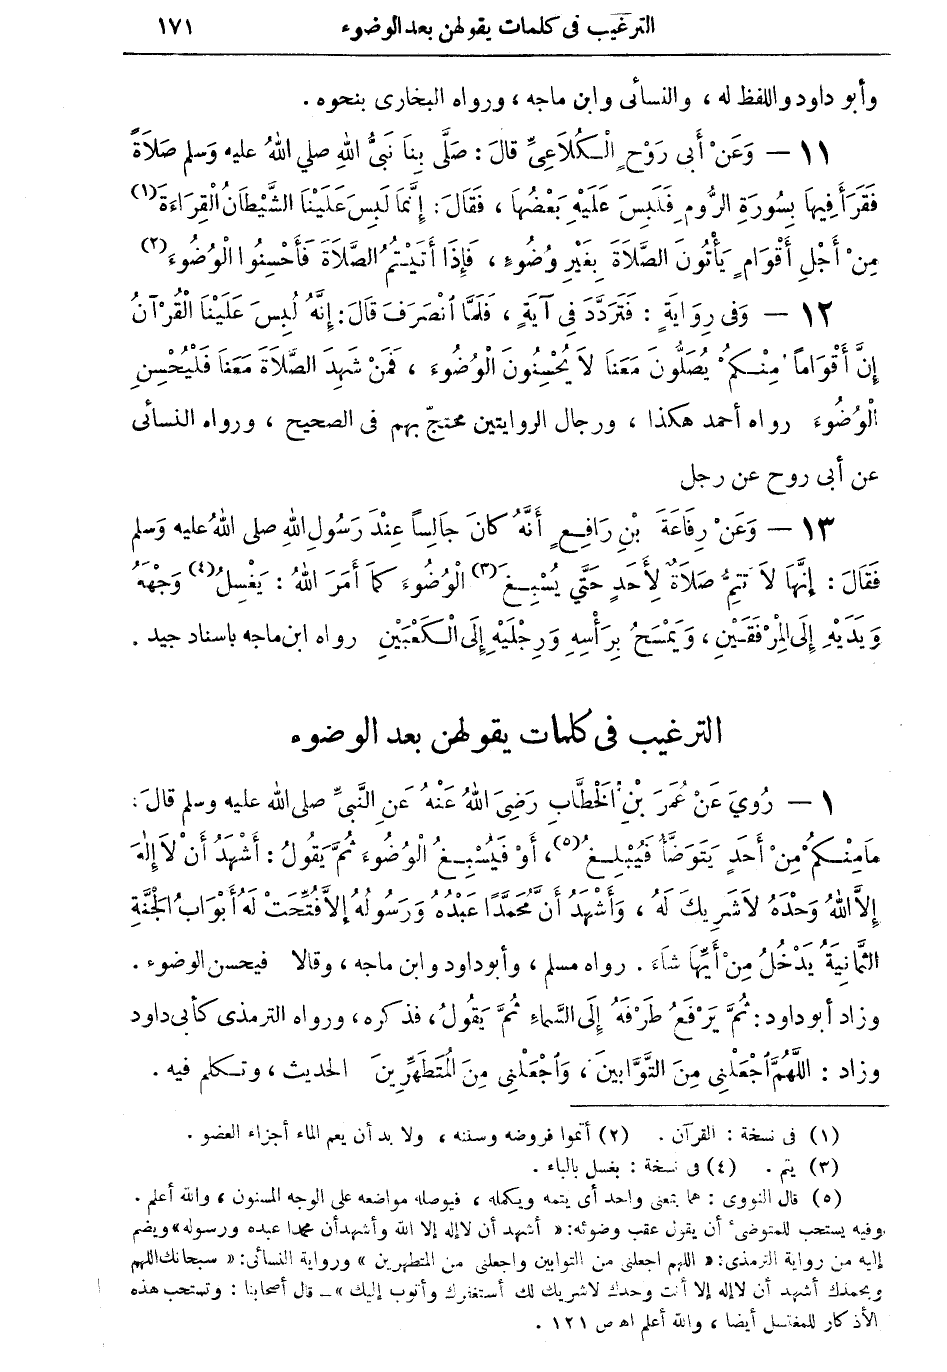 الترغيب فى كلمات يقولهن بعد الوضوء ١٧١
وأبو داود واللفظ له ، والنسائى وابن ماجه ، ورواه البخارى بنحوه .
١١ — وَعَنْ أَبى رَوْحٍ الْكُلَاعِىِّ قالَ : صَلَّى بِنَا نَبىُّ اللهِ صلي اللهُ عليه وَسلم صَلَاةً
فَقَرَأَ فِيهَا بِسُورَةِ الرُّومِ فَلَبَسَ عَلَيْهِ بَعْضُهَا ، فَقَالَ : إِنَّمَا لَبَسَ عَلَيْنَا الشَّيْطَانُ الْقِرَاءَةَ (١)
مِنْ أَجْلِ أَقْوَامٍ يَأْتُونَ الصَّلَاةَ بِغَيْرِ وُضُوءٍ ، فَإِذَا أَتَيْتُمُ الصَّلَاةَ فَأَحْسِنُوا الْوُضُوءَ (٢)
١٢ — وَفى رِوَايَةٍ : فَتَرَدَّدَ فِى آيَةٍ ، فَلَمَّا اُنْصَرَفَ قَالَ : إِنَّهُ لُبِسَ عَلَيْنَا الْقُرْآنُ
إِنَّ أَقْوَاماً مِنْكمْ يُصَلُّونَ مَعَنَا لاَ يُحْسِنُونَ الْوُضُوءَ ، فَمَنْ شَهِدَ الصَّلَاةَ مَعَنَا فَلْيُحْسِنِ
الْوُضُوءَ رواه أحمد هكذا ، ورجال الروايتين محتجّ بهم فى الصحيح ، ورواه النسائى
عن أبى روح عن رجل
١٣ — وَعَنْ رِفَاعَةَ بْنِ رَافِعٍ أَنَّهُ كانَ جَالِساً عِنْدَ رَسُولِ اللهِ صلى اللهُ عليه وَسلم
فَقَالَ : إِنَّهَا لاَ تَتِمُّ صَلَاةٌ لِأَحَدٍ حَتَّي يُسْبِغَ (٣) الْوُضُوءَ كَمَا أَمَرَ اللهُ : يَغْسِلُ (٤) وَجْهَهُ
وَيَدَيْهِ إِلَى الْمِرْفَقَيْنِ ، وَيَمْسَحُ بِرَأْسِهِ وَرِجْلَيْهِ إِلَى الْكَعْبَيْنِ رواه ابن ماجه باسناد جيد .
الترغيب فى كلمات يقولهن بعد الوضوء
١ — رُوِيَ عَنْ عُمَرَ بْنِ الْخَطَّابِ رَضِىَ اللهُ عَنْهُ عَنِ النَّبىِّ صلى الله عليه وسلم قالَ :
مَا مِنْكُمْ مِنْ أَحَدٍ يَتَوَضَّأُ فَيُبْلِغُ (٥) ، أَوْ فَيُسْبِغُ الْوُضُوءَ ثُمَّ يَقُولُ : أَشْهَدُ أَنْ لاَ إِلٰهَ
إِلاَّ اللهُ وَحْدَهُ لاَ شَرِيكَ لَهُ ، وَأَشْهَدُ أَنَّ مُحَمَّدًا عَبْدُهُ وَرَسُولُهُ إِلاَّ فُتِّحَتْ لَهُ أَبْوَابُ الْجَنَّةِ
الثَّمَانِيَةُ يَدْخُلُ مِنْ أَيِّهَا شَاءَ . رواه مسلم ، وأبو داود وابن ماجه ، وقالا فيحسن الوضوء .
وزاد أبو داود : ثُمَّ يَرْفَعُ طَرْفَهُ إِلَى السَّمَاءِ ثُمَّ يَقُولُ ، فذكره ، ورواه الترمذى كأبى داود
وزاد : اللَّهُمَّ اُجْعَلْنِى مِنَ التَّوَّابِينَ ، وَاُجْعَلْنِى مِنَ الْمُتَطَهِّرِينَ الحديث ، وتكلم فيه .
(١) فى نسخة : القرآن . (٢) أتموا فروضه وسننه ، ولا بد أن يعم الماء أجزاء العضو .
(٣) يتم . (٤) فى نسخة : بغسل بالباء .
(٥) قال النووى : هما بمعنى واحد أى يتمه ويكمله ، فيوصله مواضعه على الوجه المسنون ، والله أعلم .
وفيه يستحب للمتوضئ أن يقول عقب وضوئه : « أشهد أن لا إله إلا الله وأشهد أن محمدا عبده ورسوله » ويضم
إليه من رواية الترمذى : « اللهم اجعلنى من التوابين واجعلنى من المتطهرين » ورواية النسائى : « سبحانك اللهم
وبحمدك أشهد أن لا إله إلا أنت وحدك لا شريك لك أستغفرك وأتوب إليك » — قال أصحابنا : وتستحب هذه
الأذكار للمغتسل أيضا ، والله أعلم اه ص ١٢١ .